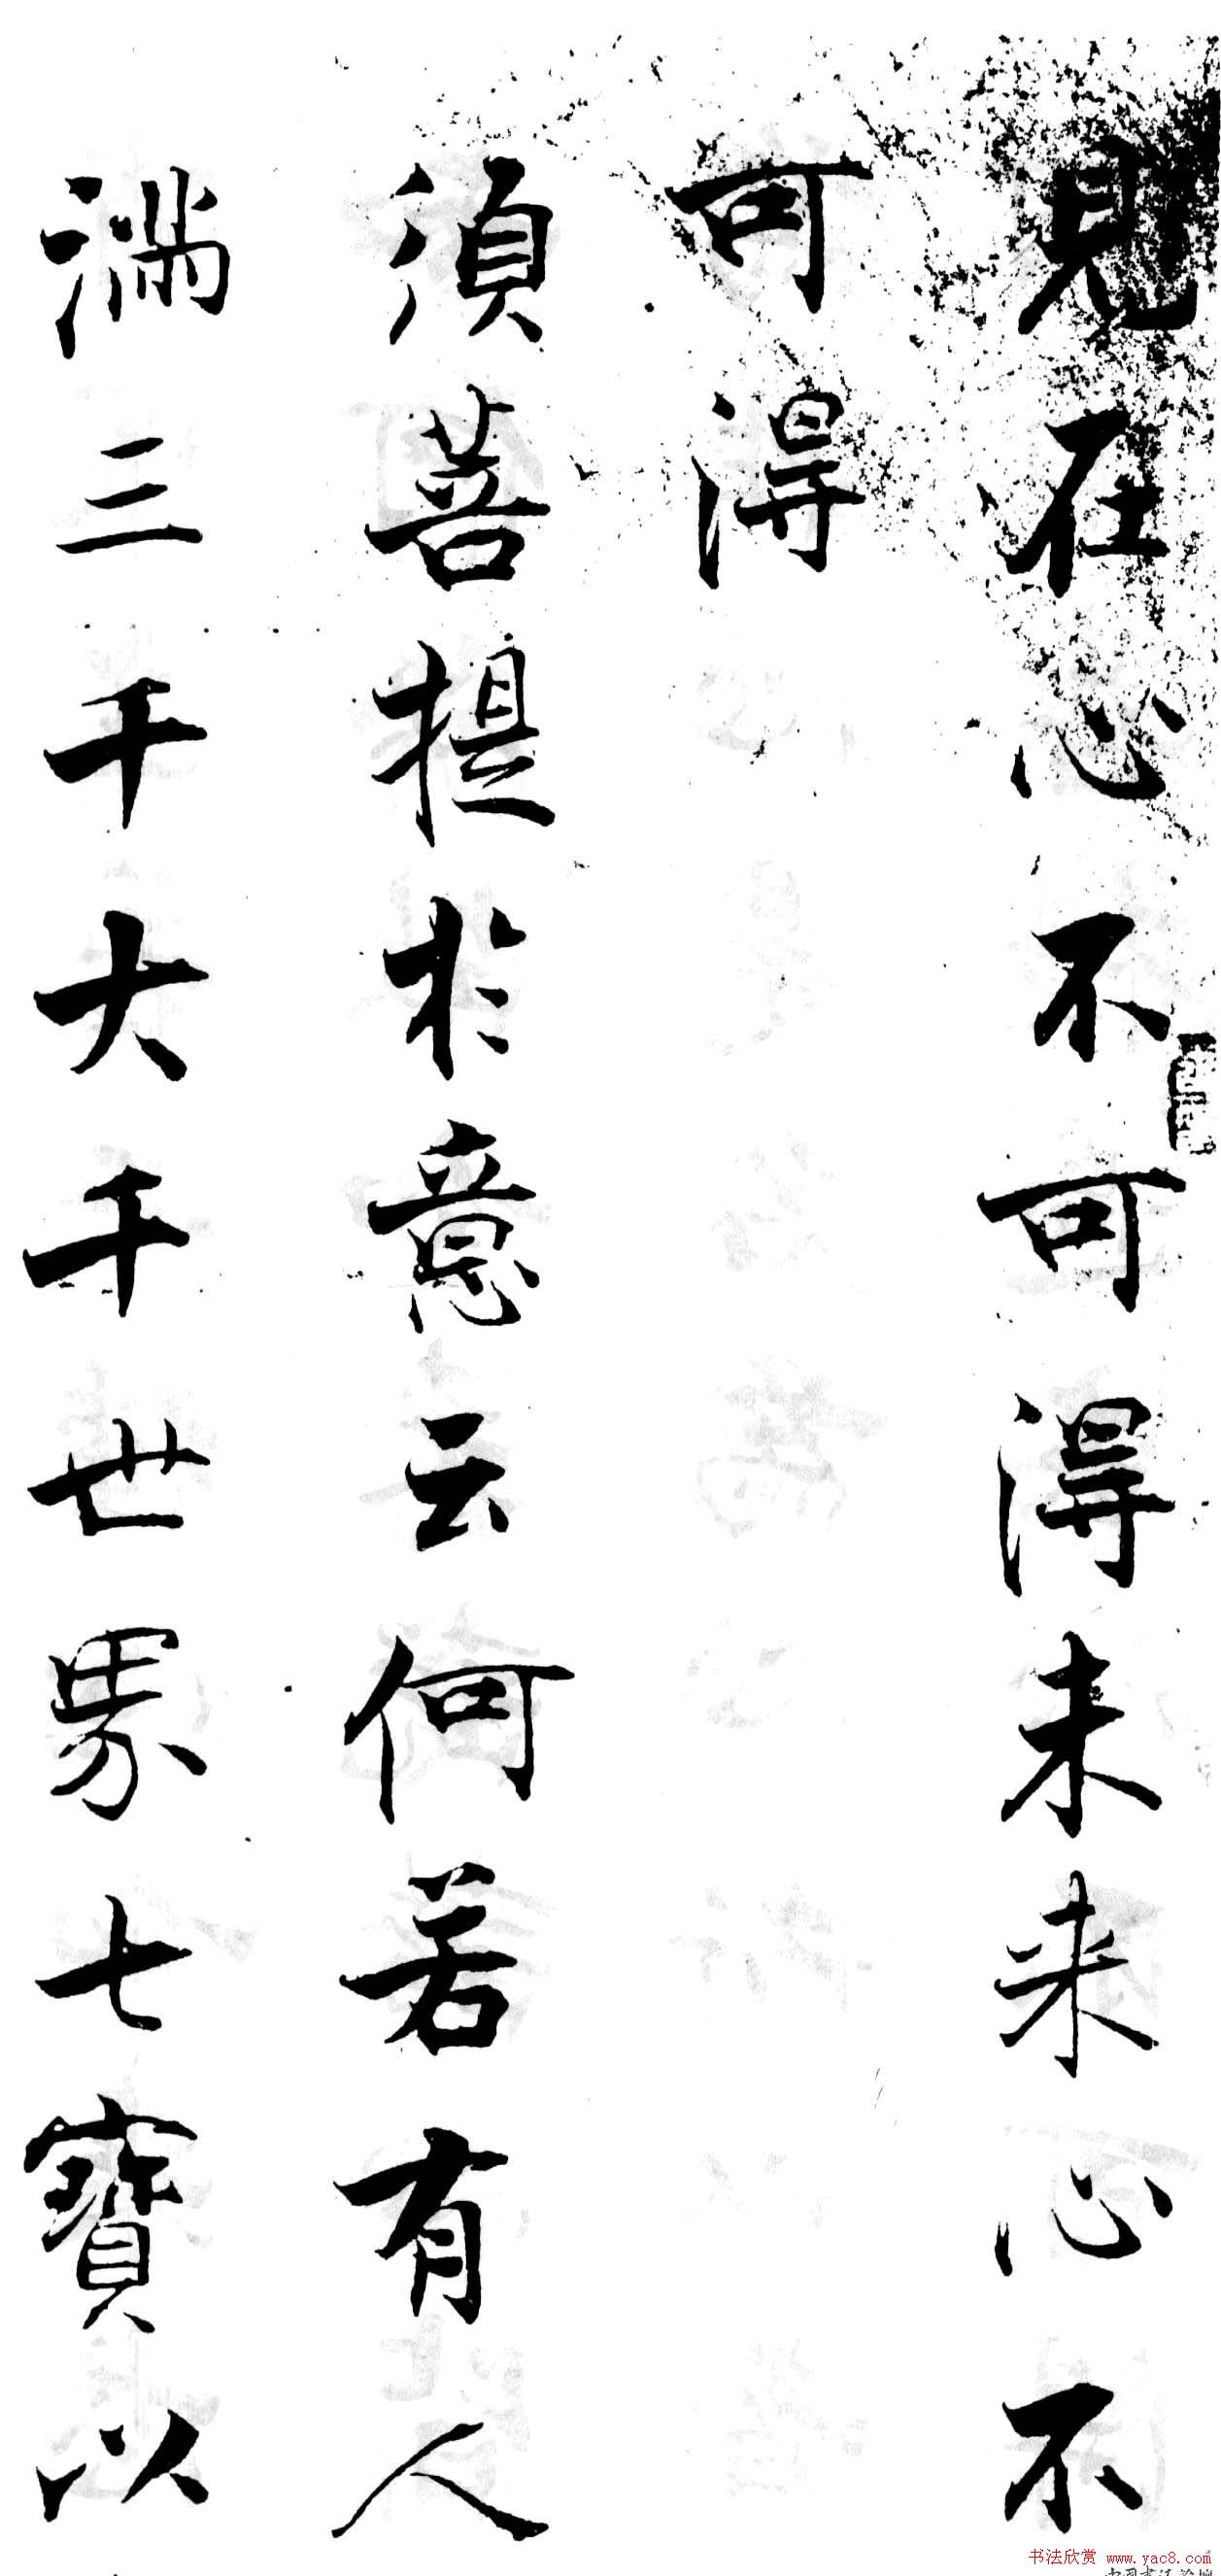 見在心不可得未来心不
可得
須菩提於意云何若有人
満三千大千世界七寶以
书法欣赏 www.yac8.com